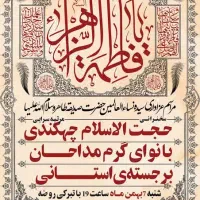 یا فاطمة الزهرا
مراسم عزاداری سیدة نساء العالمین حضرت صدیقه طاهره سلام الله علیها
سخنرانی
مرثیه سرایی
حجت الاسلام چهکندی
با نوای گرم مداحان
برجسته‌ی استانی
شنبه ۷ بهمن ماه ساعت ۱۹ با تبرکی روضه